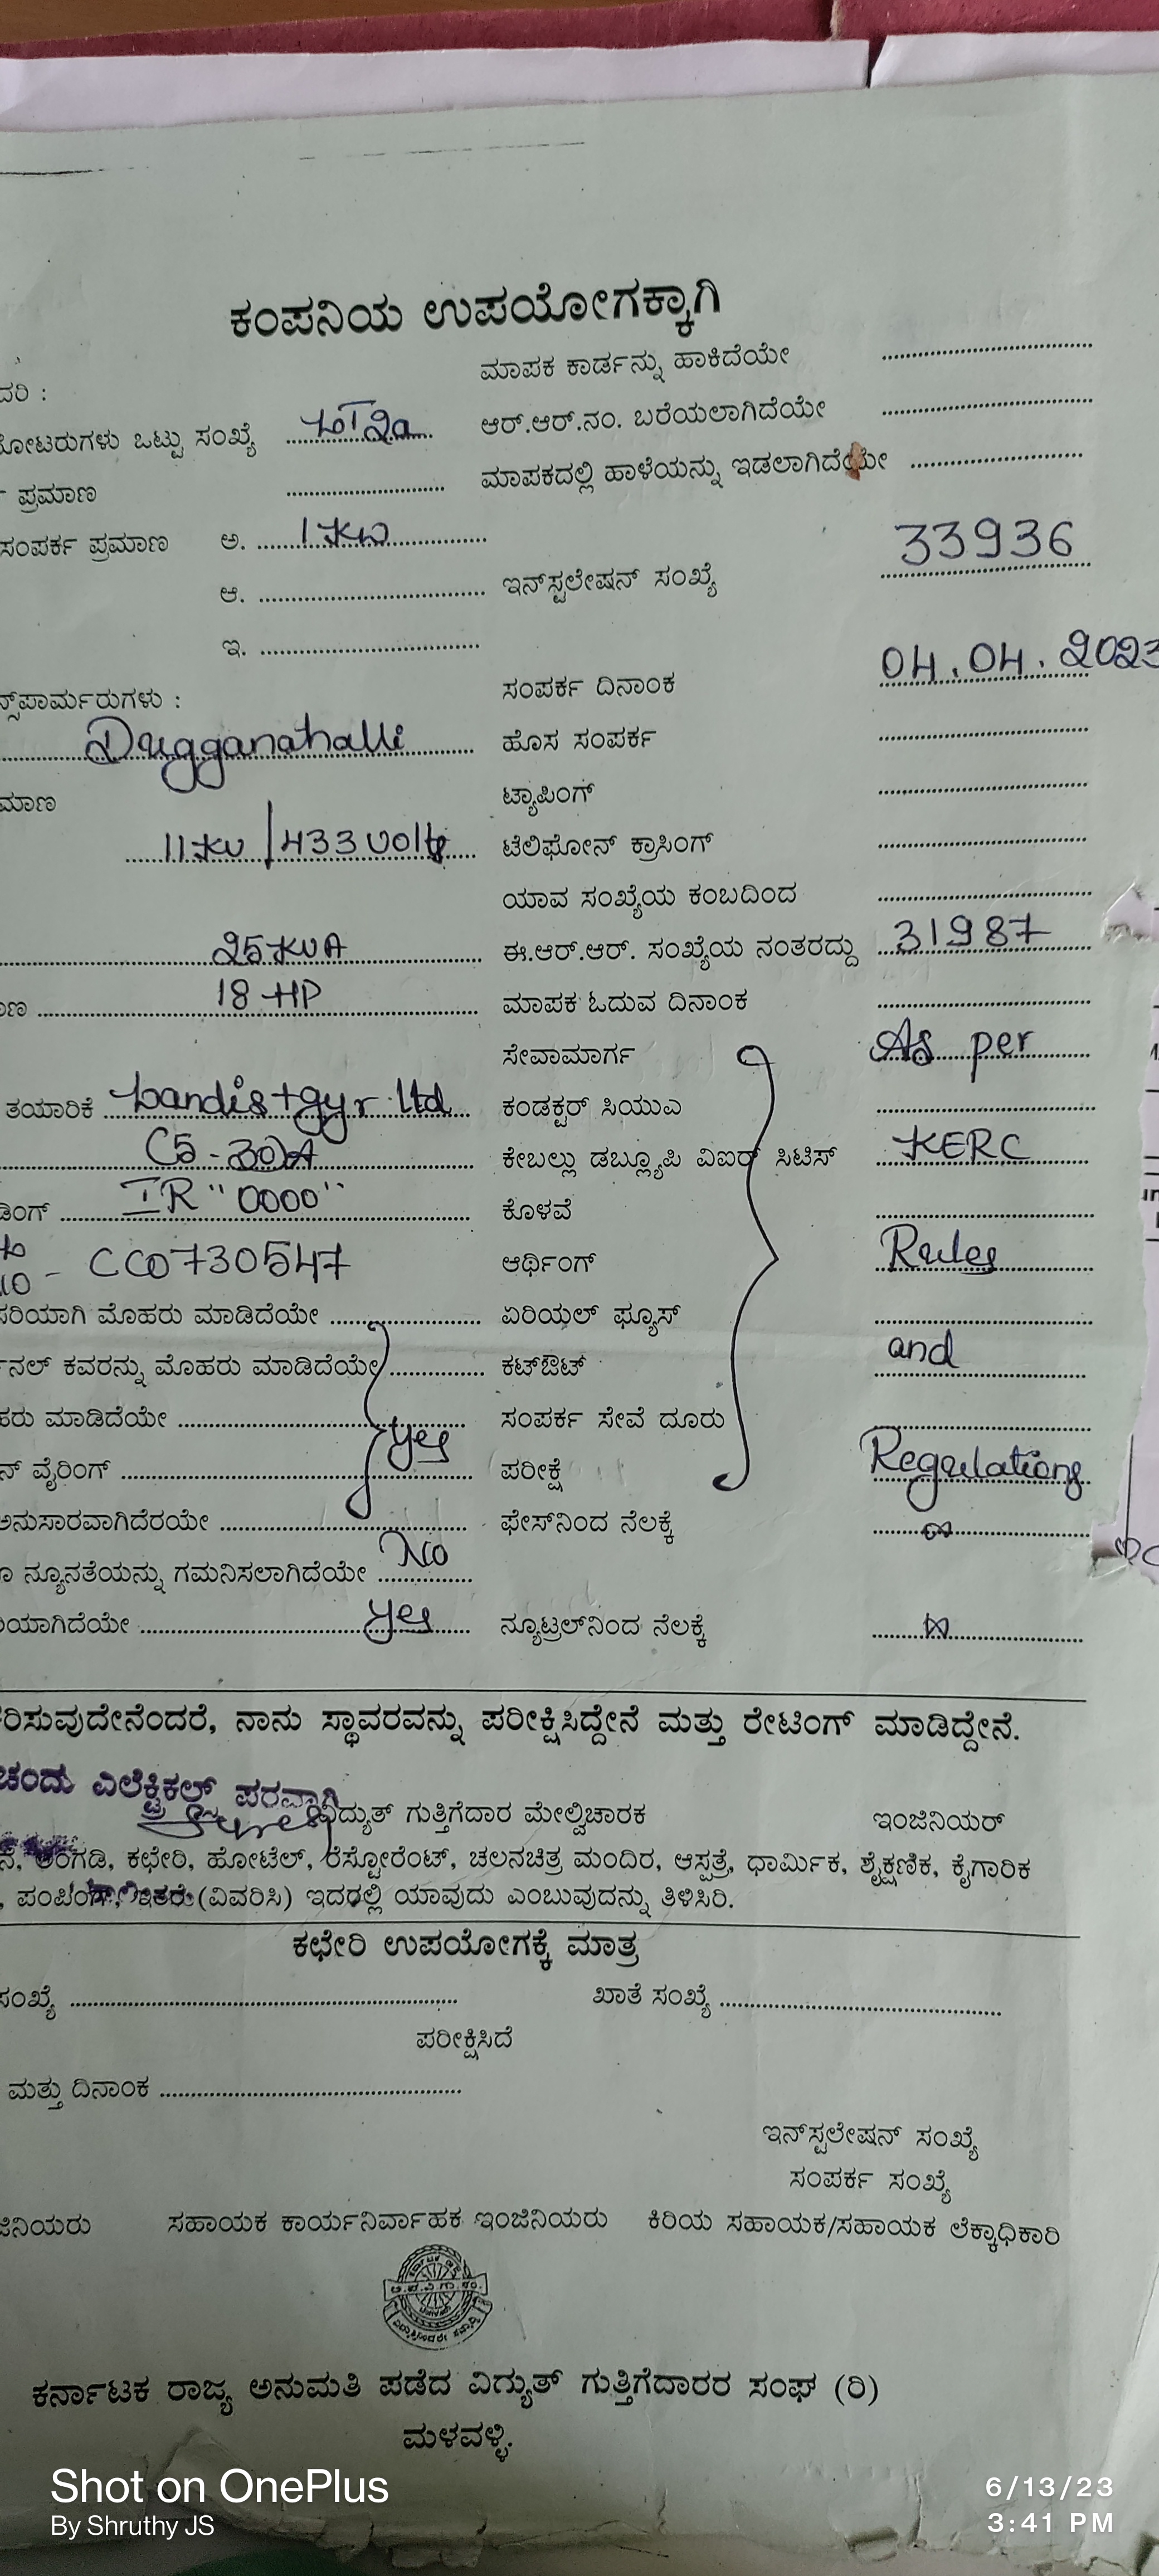 ಕಂಪನಿಯ ಉಪಯೋಗಕ್ಕಾಗಿ
ದರಿ : ಮಾಪಕ ಕಾರ್ಡನ್ನು ಹಾಕಿದೆಯೇ
ೋಟರುಗಳು ಒಟ್ಟು ಸಂಖ್ಯೆ LT2a ಆರ್.ಆರ್.ನಂ. ಬರೆಯಲಾಗಿದೆಯೇ
ಪ್ರಮಾಣ ಮಾಪಕದಲ್ಲಿ ಹಾಳೆಯನ್ನು ಇಡಲಾಗಿದೆಯೇ
ಸಂಪರ್ಕ ಪ್ರಮಾಣ ಅ. 1 KW
ಆ. ಇನ್‌ಸ್ಟಲೇಷನ್ ಸಂಖ್ಯೆ 33936
ಇ.
ನ್ಸ್‌ಪಾರ್ಮರುಗಳು : ಸಂಪರ್ಕ ದಿನಾಂಕ 04.04.2023
Dugganahalli ಹೊಸ ಸಂಪರ್ಕ
ಮಾಣ ಟ್ಯಾಪಿಂಗ್
11KV/433 Volts ಟೆಲಿಫೋನ್ ಕ್ರಾಸಿಂಗ್
ಯಾವ ಸಂಖ್ಯೆಯ ಕಂಬದಿಂದ
25KVA ಈ.ಆರ್.ಆರ್. ಸಂಖ್ಯೆಯ ನಂತರದ್ದು 31987
ಣ 18 HP ಮಾಪಕ ಓದುವ ದಿನಾಂಕ
ಸೇವಾಮಾರ್ಗ As per
ತಯಾರಿಕೆ Landis+gyr Ltd ಕಂಡಕ್ಟರ್ ಸಿಯುಎ
C5-30A ಕೇಬಲ್ಲು ಡಬ್ಲ್ಯೂಪಿ ವಿಐರ್ ಸಿಟಿಸ್ KERC
ಡಿಂಗ್ IR "0000" ಕೊಳವೆ
- CC0730547 ಆರ್ಥಿಂಗ್ Rules
ಸರಿಯಾಗಿ ಮೊಹರು ಮಾಡಿದೆಯೇ ಏರಿಯಲ್ ಫ್ಯೂಸ್
ನಲ್ ಕವರನ್ನು ಮೊಹರು ಮಾಡಿದೆಯೇ ಕಟ್‌ಔಟ್ and
ಹರು ಮಾಡಿದೆಯೇ ಸಂಪರ್ಕ ಸೇವೆ ದೂರು
ನ್ ವೈರಿಂಗ್ yes ಪರೀಕ್ಷೆ Regulations
ಅನುಸಾರವಾಗಿದೆರಯೇ ಫೇಸ್‌ನಿಂದ ನೆಲಕ್ಕೆ
ನ್ಯೂನತೆಯನ್ನು ಗಮನಿಸಲಾಗಿದೆಯೇ No
ಯಾಗಿದೆಯೇ yes ನ್ಯೂಟ್ರಲ್‌ನಿಂದ ನೆಲಕ್ಕೆ
ರಿಸುವುದೇನೆಂದರೆ, ನಾನು ಸ್ಥಾವರವನ್ನು ಪರೀಕ್ಷಿಸಿದ್ದೇನೆ ಮತ್ತು ರೇಟಿಂಗ್ ಮಾಡಿದ್ದೇನೆ.
ಚಂದು ಎಲೆಕ್ಟ್ರಿಕಲ್ಸ್ ಪರವಾಗಿ
ವಿದ್ಯುತ್ ಗುತ್ತಿಗೆದಾರ ಮೇಲ್ವಿಚಾರಕ ಇಂಜಿನಿಯರ್
ನೆ, ಅಂಗಡಿ, ಕಛೇರಿ, ಹೋಟೆಲ್, ರೆಸ್ಟೋರೆಂಟ್, ಚಲನಚಿತ್ರ ಮಂದಿರ, ಆಸ್ಪತ್ರೆ, ಧಾರ್ಮಿಕ, ಶೈಕ್ಷಣಿಕ, ಕೈಗಾರಿಕ
, ಪಂಪಿಂಗ್, ಇತರೆ (ವಿವರಿಸಿ) ಇದರಲ್ಲಿ ಯಾವುದು ಎಂಬುವುದನ್ನು ತಿಳಿಸಿರಿ.
ಕಛೇರಿ ಉಪಯೋಗಕ್ಕೆ ಮಾತ್ರ
ಸಂಖ್ಯೆ ಖಾತೆ ಸಂಖ್ಯೆ
ಪರೀಕ್ಷಿಸಿದೆ
ಮತ್ತು ದಿನಾಂಕ
ಇನ್‌ಸ್ಟಲೇಷನ್ ಸಂಖ್ಯೆ
ಸಂಪರ್ಕ ಸಂಖ್ಯೆ
ಜಿನಿಯರು ಸಹಾಯಕ ಕಾರ್ಯನಿರ್ವಾಹಕ ಇಂಜಿನಿಯರು ಕಿರಿಯ ಸಹಾಯಕ/ಸಹಾಯಕ ಲೆಕ್ಕಾಧಿಕಾರಿ
ಕರ್ನಾಟಕ ರಾಜ್ಯ ಅನುಮತಿ ಪಡೆದ ವಿದ್ಯುತ್ ಗುತ್ತಿಗೆದಾರರ ಸಂಘ (ರಿ)
ಮಳವಳ್ಳಿ.
Shot on OnePlus
By Shruthy JS
6/13/23
3:41 PM